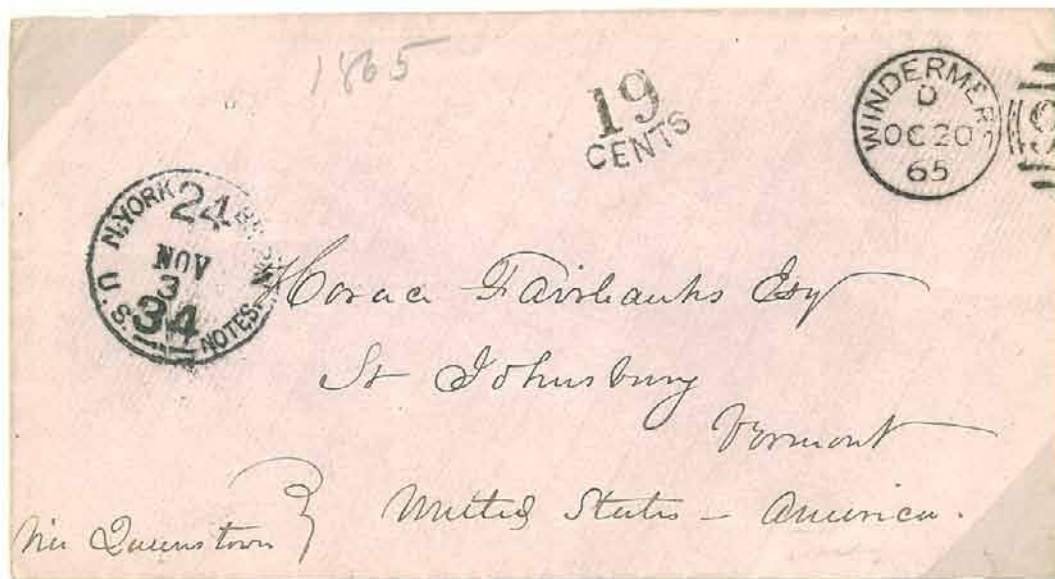 1865
19
CENTS
WINDERMER
D
OC 20
65
9
N.YORK 24
NOV
3
34
U.S. NOTES.
Horace Fairbanks Esq
St Johnsbury
Vermont
United States – America.
Via Queenstown